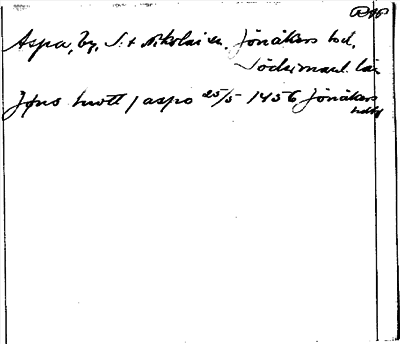 Aspa, by, S:t Nikolai sn. Jönåkers hd,
Södermanl. län
Jøns smstt j aspo 25/5 1456 Jönåkers
hdbf